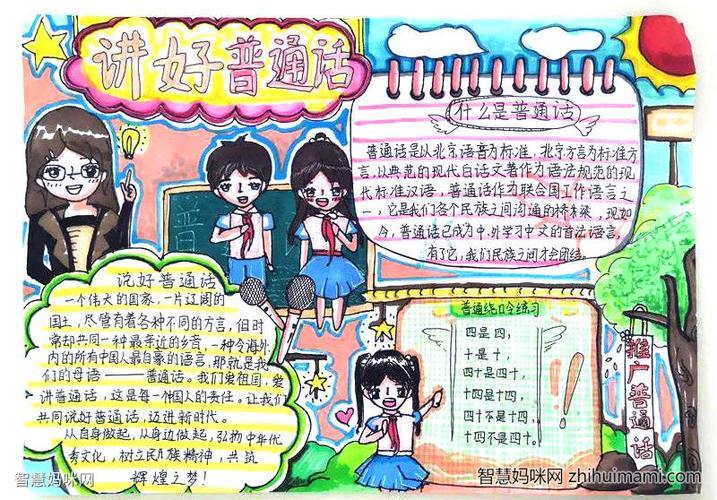 讲好普通话
什么是普通话
普通话是以北京语音为标准,北京方言为标准方
言,以典范的现代白话文著作为语法规范的现
代标准汉语,普通话作为联合国工作语言之
一,它是我们各个民族之间沟通的桥梁,现如
今,普通话已成为中.外学习中文的首法语言,
有了它,我们民族之间才会团结。
普
说好普通话
一个伟大的国家,一片辽阔的
国土,尽管有着各种不同的方言,但时
常却共同一种最亲近的乡音,一种令海外
内的所有中国人最自豪的语言,那就是我
们的母语——普通话。我们爱祖国,爱
讲普通话,这是每一个国人的责任。让我们
共同说好普通话,迈进新时代。
从自身做起,从身边做起,弘扬中华代
秀文化,树立民族精神,共筑
辉煌之梦!
普通绕口令练习
四是四,
十是十,
四十是四十,
十四是十四,
四十不是十四,
十四不是四十。
推广普通话
智慧妈咪网
智慧妈咪网 zhihuimami.com